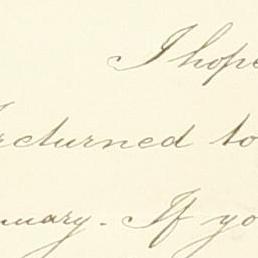 I hope
returned to
nuary. If yo